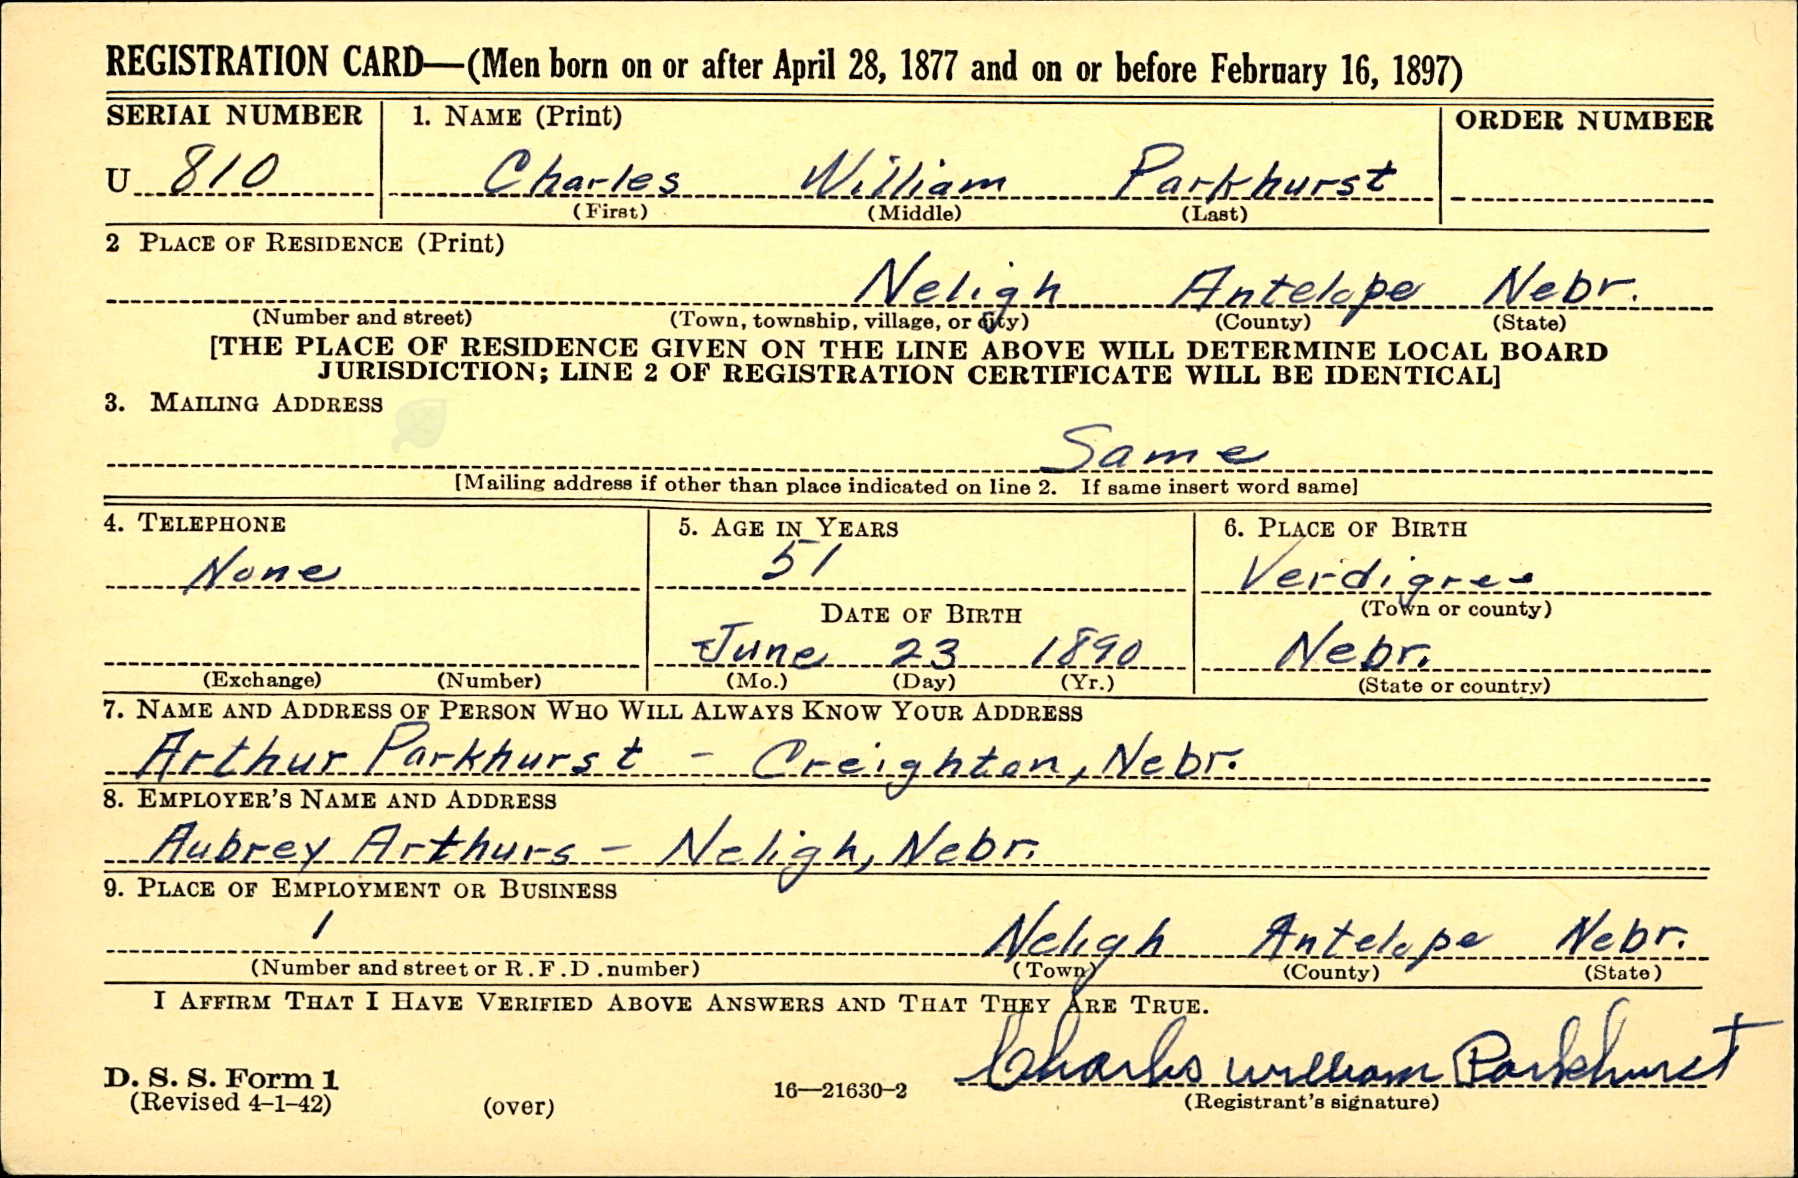 REGISTRATION CARD—(Men born on or after April 28, 1877 and on or before February 16, 1897)
SERIAL NUMBER 1. NAME (Print) ORDER NUMBER
U 810 Charles William Parkhurst
(First) (Middle) (Last)
2 PLACE OF RESIDENCE (Print)
Neligh Antelope Nebr.
(Number and street) (Town, township, village, or city) (County) (State)
[THE PLACE OF RESIDENCE GIVEN ON THE LINE ABOVE WILL DETERMINE LOCAL BOARD
JURISDICTION; LINE 2 OF REGISTRATION CERTIFICATE WILL BE IDENTICAL]
3. MAILING ADDRESS
Same
[Mailing address if other than place indicated on line 2. If same insert word same]
4. TELEPHONE 5. AGE IN YEARS 6. PLACE OF BIRTH
None 51 Verdigree
DATE OF BIRTH (Town or county)
June 23 1890 Nebr.
(Exchange) (Number) (Mo.) (Day) (Yr.) (State or country)
7. NAME AND ADDRESS OF PERSON WHO WILL ALWAYS KNOW YOUR ADDRESS
Arthur Parkhurst - Creighton, Nebr.
8. EMPLOYER'S NAME AND ADDRESS
Aubrey Arthurs - Neligh, Nebr.
9. PLACE OF EMPLOYMENT OR BUSINESS
1 Neligh Antelope Nebr.
(Number and street or R.F.D. number) (Town) (County) (State)
I AFFIRM THAT I HAVE VERIFIED ABOVE ANSWERS AND THAT THEY ARE TRUE.
Charles William Parkhurst
D. S. S. Form 1
(Revised 4-1-42) (over) 16—21630-2 (Registrant's signature)